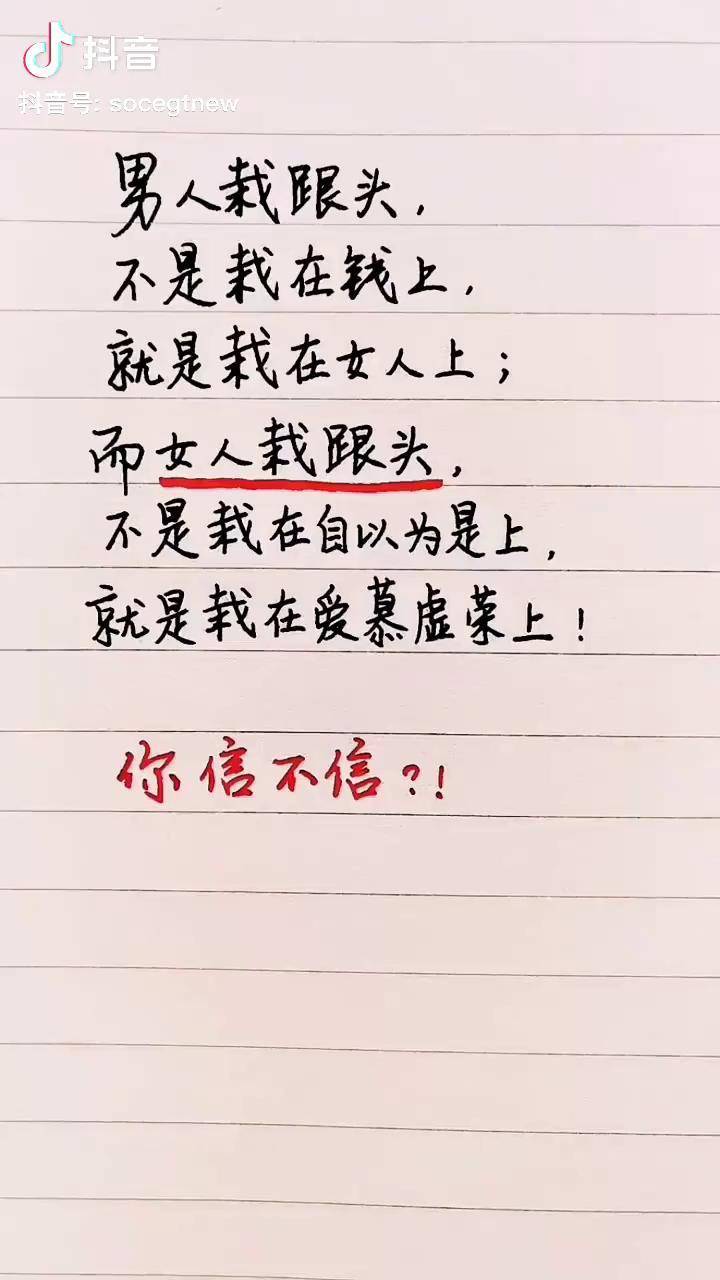 抖音
抖音号: socegtnew
男人栽跟头,
不是栽在钱上,
就是栽在女人上;
而女人栽跟头,
不是栽在自以为是上,
就是栽在爱慕虚荣上!
你信不信?!